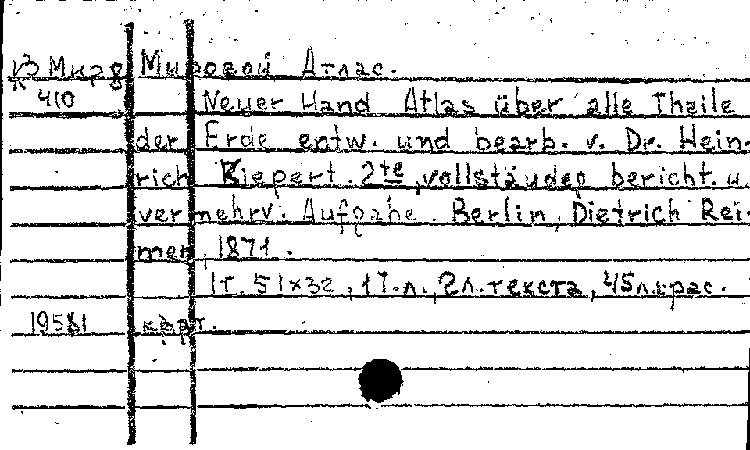 К3 Мир8 Мировой Атлас.
410 Neuer Hand Atlas über alle Theile
der Erde entw. und bearb. v. Dr. Hein-
rich Kiepert. 2te, vollständep bericht. u.
vermehrv. Aufgabe. Berlin, Dietrich Rei-
mer, 1871.
1т. 51×32, 1т.л., 2л.текста, 45л.крас.
19581 карт.